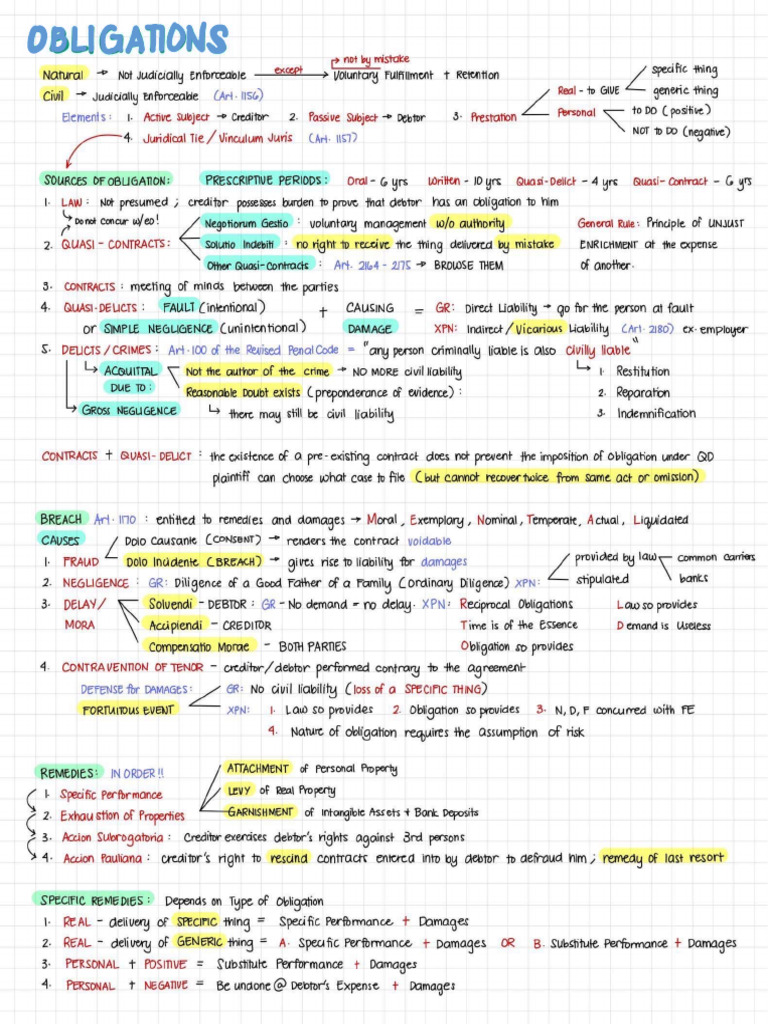 OBLIGATIONS
not by mistake
Natural → Not Judicially Enforceable except → Voluntary Fulfillment + Retention
Civil → Judicially Enforceable (Art. 1156)
Elements: 1. Active Subject → Creditor 2. Passive Subject → Debtor 3. Prestation
Real - to GIVE
specific thing
generic thing
Personal
to DO (positive)
NOT to DO (negative)
4. Juridical Tie / Vinculum Juris (Art. 1157)
SOURCES OF OBLIGATION: PRESCRIPTIVE PERIODS: Oral - 6 yrs Written - 10 yrs Quasi-Delict - 4 yrs Quasi-Contract - 6 yrs
1. LAW: Not presumed ; creditor possesses burden to prove that debtor has an obligation to him
↳ Do not concur w/ eo!
2. QUASI - CONTRACTS:
Negotiorum Gestio : voluntary management w/o authority
Solutio Indebiti : no right to receive the thing delivered by mistake
Other Quasi-Contracts : Art. 2164 - 2175 → BROWSE THEM
General Rule: Principle of UNJUST
ENRICHMENT at the expense
of another.
3. CONTRACTS: meeting of minds between the parties
4. QUASI-DELICTS: FAULT (intentional) + CAUSING = GR: Direct Liability → go for the person at fault
or SIMPLE NEGLIGENCE (unintentional) DAMAGE XPN: Indirect / Vicarious Liability (Art. 2180) ex. employer
5. DELICTS / CRIMES: Art. 100 of the Revised Penal Code = "any person criminally liable is also civilly liable"
↳ ACQUITTAL Not the author of the crime → NO MORE civil liability ↳ 1. Restitution
DUE TO: Reasonable Doubt exists (preponderance of evidence) : 2. Reparation
↳ GROSS NEGLIGENCE ↳ there may still be civil liability 3. Indemnification
CONTRACTS + QUASI-DELICT : the existence of a pre-existing contract does not prevent the imposition of obligation under QD
plaintiff can choose what case to file (but cannot recover twice from same act or omission)
BREACH Art. 1170 : entitled to remedies and damages → Moral, Exemplary, Nominal, Temperate, Actual, Liquidated
CAUSES
1. FRAUD
Dolo Causante (CONSENT) → renders the contract voidable
Dolo Incidente (BREACH) → gives rise to liability for damages
2. NEGLIGENCE : GR: Diligence of a Good Father of a Family (Ordinary Diligence) XPN:
provided by law
common carriers
banks
stipulated
3. DELAY/
MORA
Solvendi - DEBTOR: GR - No demand = no delay. XPN: Reciprocal Obligations Law so provides
Accipiendi - CREDITOR Time is of the Essence Demand is Useless
Compensatio Morae - BOTH PARTIES Obligation so provides
4. CONTRAVENTION OF TENOR - creditor/debtor performed contrary to the agreement
DEFENSE for DAMAGES:
FORTUITOUS EVENT
GR: No civil liability (loss of a SPECIFIC THING)
XPN: 1. Law so provides 2. Obligation so provides 3. N, D, F concurred with FE
4. Nature of obligation requires the assumption of risk
REMEDIES: IN ORDER!!
1. Specific Performance
2. Exhaustion of Properties
ATTACHMENT of Personal Property
LEVY of Real Property
GARNISHMENT of Intangible Assets + Bank Deposits
3. Accion Subrogatoria : Creditor exercises debtor's rights against 3rd persons
4. Accion Pauliana : creditor's right to rescind contracts entered into by debtor to defraud him ; remedy of last resort
SPECIFIC REMEDIES: Depends on Type of Obligation
1. REAL - delivery of SPECIFIC thing = Specific Performance + Damages
2. REAL - delivery of GENERIC thing = A. Specific Performance + Damages OR B. Substitute Performance + Damages
3. PERSONAL + POSITIVE = Substitute Performance + Damages
4. PERSONAL + NEGATIVE = Be undone @ Debtor's Expense + Damages